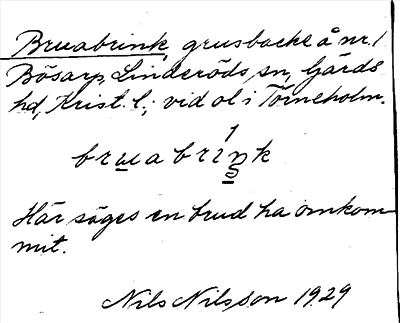 Bruabrink, grusbacke å nr. 1
Bösarp, Linderöds sn, Gärds
hd, Krist. l.; vid ol i Törneholm.
bruabriŋk
Här säges en brud ha omkom-
mit.
Nils Nilsson 1929